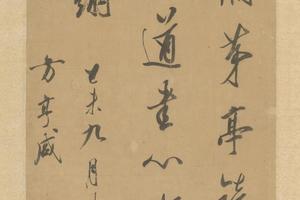 茅亭
道書心
己未九月
方亨咸